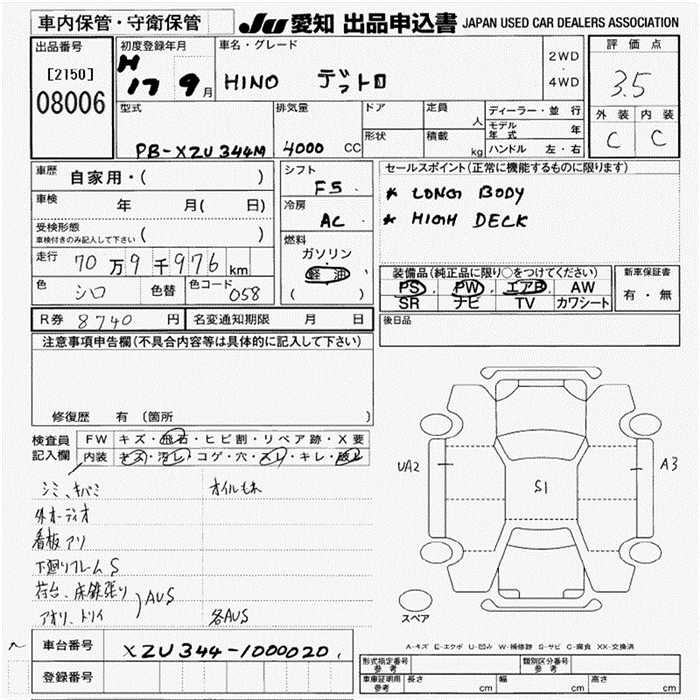 車内保管・守衛保管
JU 愛知 出品申込書 JAPAN USED CAR DEALERS ASSOCIATION
出品番号
[2150]
08006
初度登録年月
H 17 9月
車名・グレード
HINO デュトロ
2WD
・
4WD
評価点
3.5
外装 内装
C C
型式
PB-XZU344M
排気量
4000 CC
ドア
形状
定員 人
積載 kg
ディーラー・並行
モデル年式 年
ハンドル 左・右
車歴 自家用・( )
車検 年 月( 日)
受検形態
車検付きのみ記入して下さい ( )
走行 70万9千976km
色 シロ 色替 色コード 058
シフト
F5
冷房
AC
燃料
ガソリン
軽油
( )
セールスポイント(正常に機能するものに限ります)
* LONG BODY
* HIGH DECK
装備品(純正品に限り○をつけてください)
PS PW エアB AW
SR ナビ TV カワシート
新車保証書
有・無
R券 8740円 名変通知期限 月 日
後日品
注意事項申告欄(不具合内容等は具体的に記入して下さい)
修復歴 有(箇所 )
検査員記入欄
FW キズ・飛石・ヒビ割・リペア跡・X要
内装 キズ・汚レ・コゲ・穴・スレ・キレ・破レ
シミ、キバミ オイルもれ
外オーディオ
看板アリ
下廻りフレームS
荷台、床鉄張り
アオリ、トリイ AUS 各AUS
UA2
S1
A3
スペア
A-キズ E-エクボ U-凹み W-補修跡 S-サビ C-腐食 XX-交換済
車台番号 XZU344-1000020
登録番号
形式指定番号 参考
類別区分番号 参考
車庫証明用 参考 長さ cm 幅 cm 高さ cm